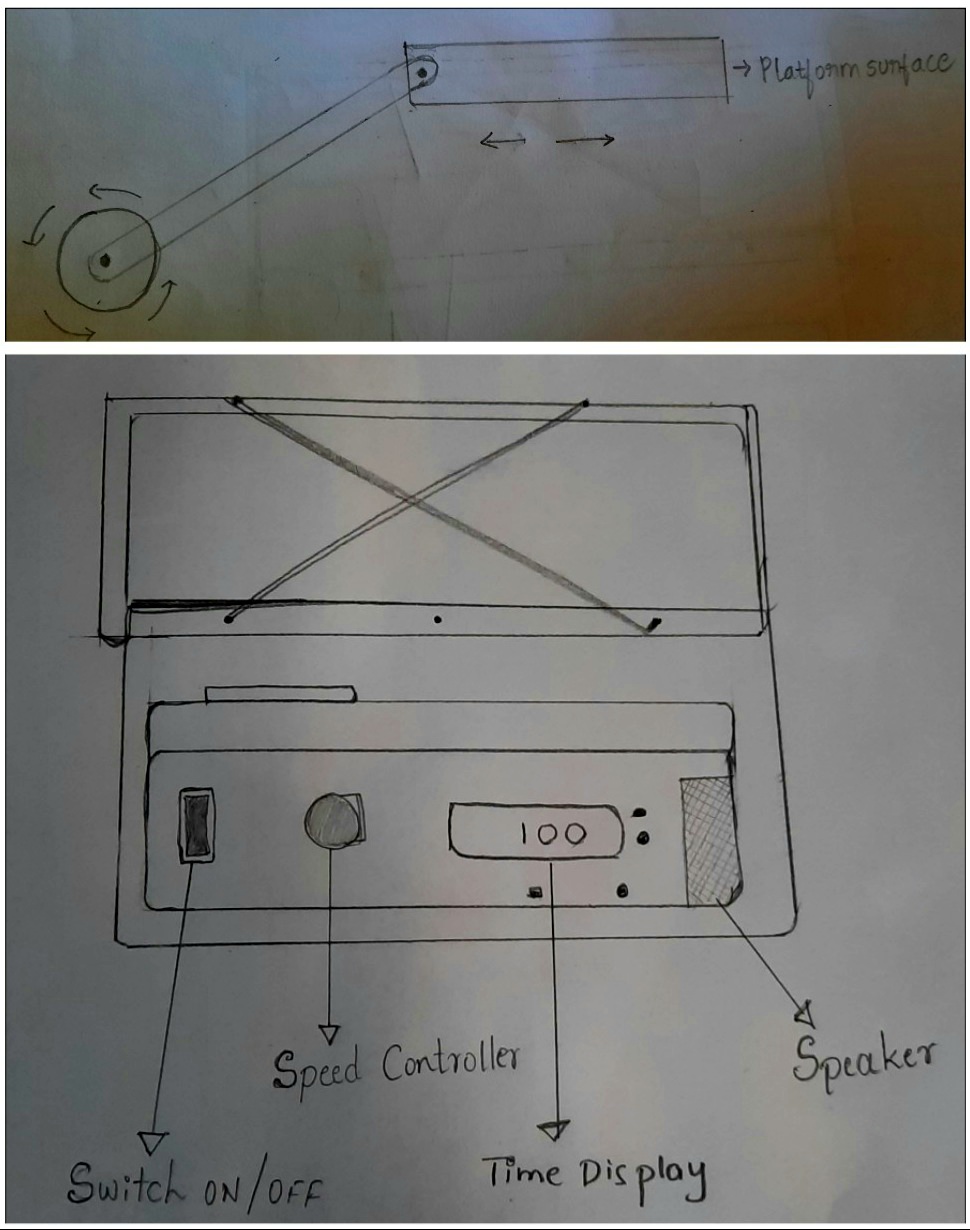 → Platform surface
100
Speed Controller
Speaker
Switch ON/OFF
Time Display